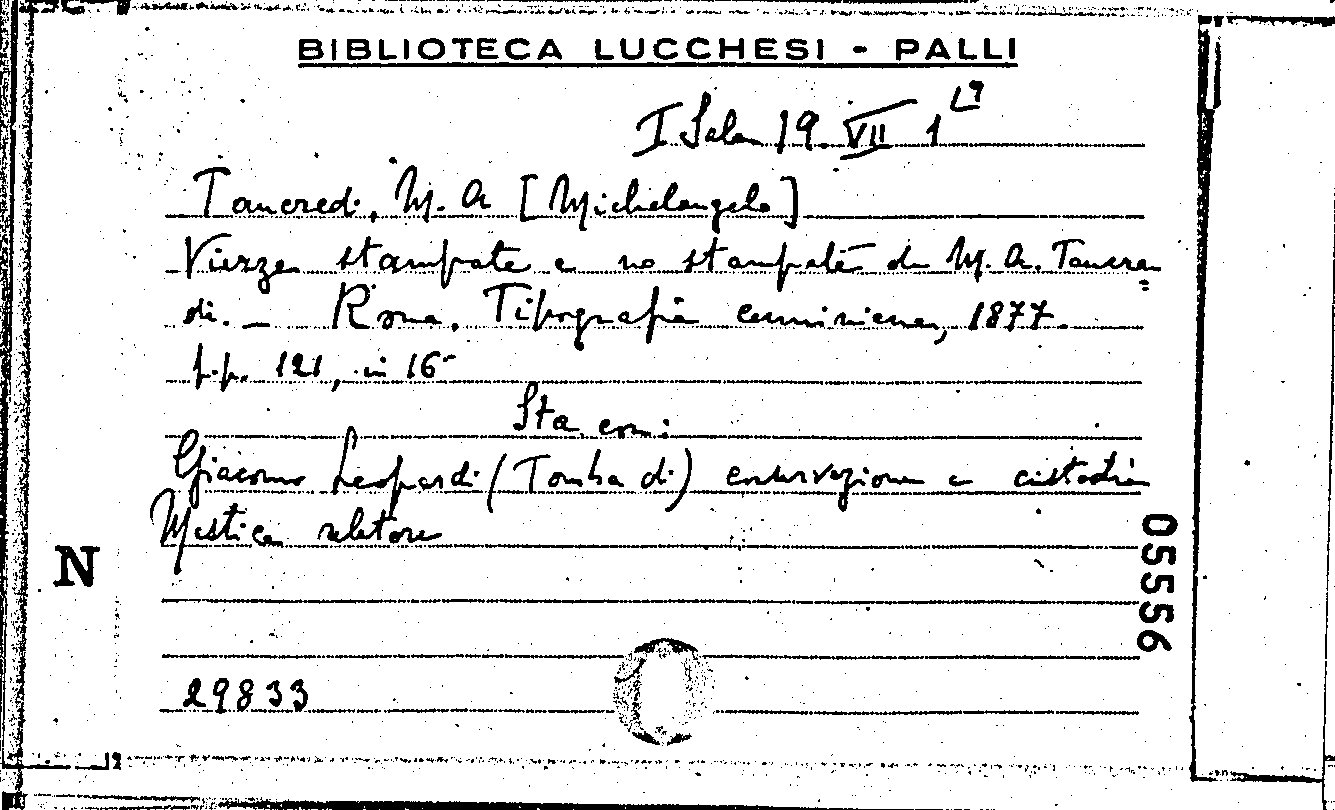 BIBLIOTECA LUCCHESI - PALLI
I Sala 19. VII 1 (9
Tancredi, M. A [Michelangelo]
stampate e no stampate di M. A. Tancre=
di. — Roma, Tipografia 1877.
p.p. 121, in 16°
Sta con:
Giacomo Leopardi (Tomba di) conservazione e custodia
Mestica relatore
N
05556
29833